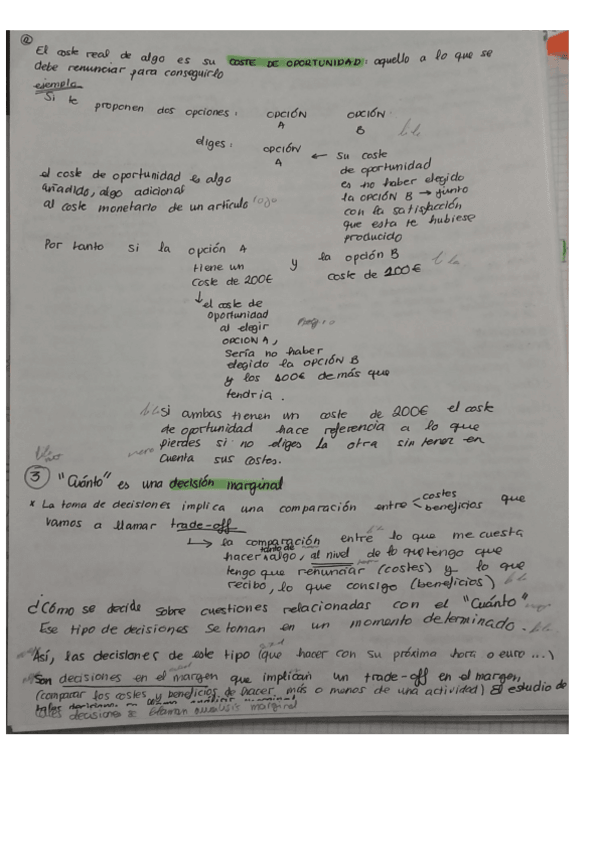 ②
El coste real de algo es su COSTE DE OPORTUNIDAD: aquello a lo que se
debe renunciar para conseguirlo
ejemplo
Si te proponen dos opciones: OPCIÓN A OPCIÓN B
eliges: OPCIÓN A ← su coste
de oportunidad
es no haber elegido
la OPCIÓN B → junto
con la satisfacción
que esta te hubiese
producido
el coste de oportunidad es algo
añadido, algo adicional
al coste monetario de un artículo
Por tanto si la opción A y la opción B
tiene un coste de 200€
coste de 200€
↓ el coste de
oportunidad
al elegir
OPCION A,
sería no haber
elegido la OPCIÓN B
y los 100€ de más que
tendría.
Si ambas tienen un coste de 200€ el coste
de oportunidad hace referencia a lo que
pierdes si no eliges la otra sin tener en
cuenta sus costes.
③ "Cuánto" es una decisión marginal
* La toma de decisiones implica una comparación entre < costes beneficios que
vamos a llamar trade-off
↳ la comparación entre lo que me cuesta
hacer tanto de algo, al nivel de lo que tengo que
tengo que renunciar (costes) y lo que
recibo, lo que consigo (beneficios)
¿Cómo se decide sobre cuestiones relacionadas con el "Cuánto"
Ese tipo de decisiones se toman en un momento determinado.
Así, las decisiones de este tipo (que hacer con su próxima hora o euro ...)
Son decisiones en el margen que implican un trade-off en el margen,
(comparar los costes y beneficios de hacer más o menos de una actividad) El estudio de
tales decisiones se llaman analisis marginal